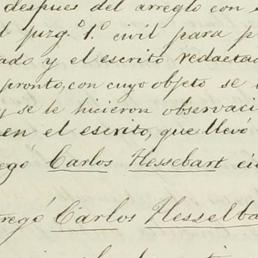 despues del arreglo con e
l juzg.º 1.º civil para p
ado y el escrito redacta
pronto, con cuyo objeto se
y se le hicieron observaci
en el escrito, que llevó
egó Carlos Hessebart
tregó Carlos Hesselba